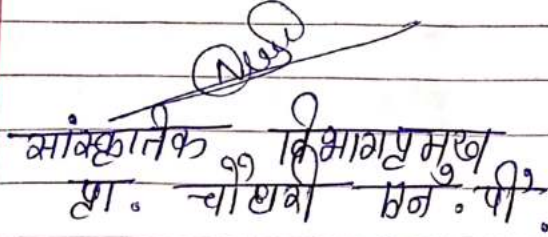 सांस्कृतिक विभागप्रमुख
प्रा. चौधरी एन. पी.